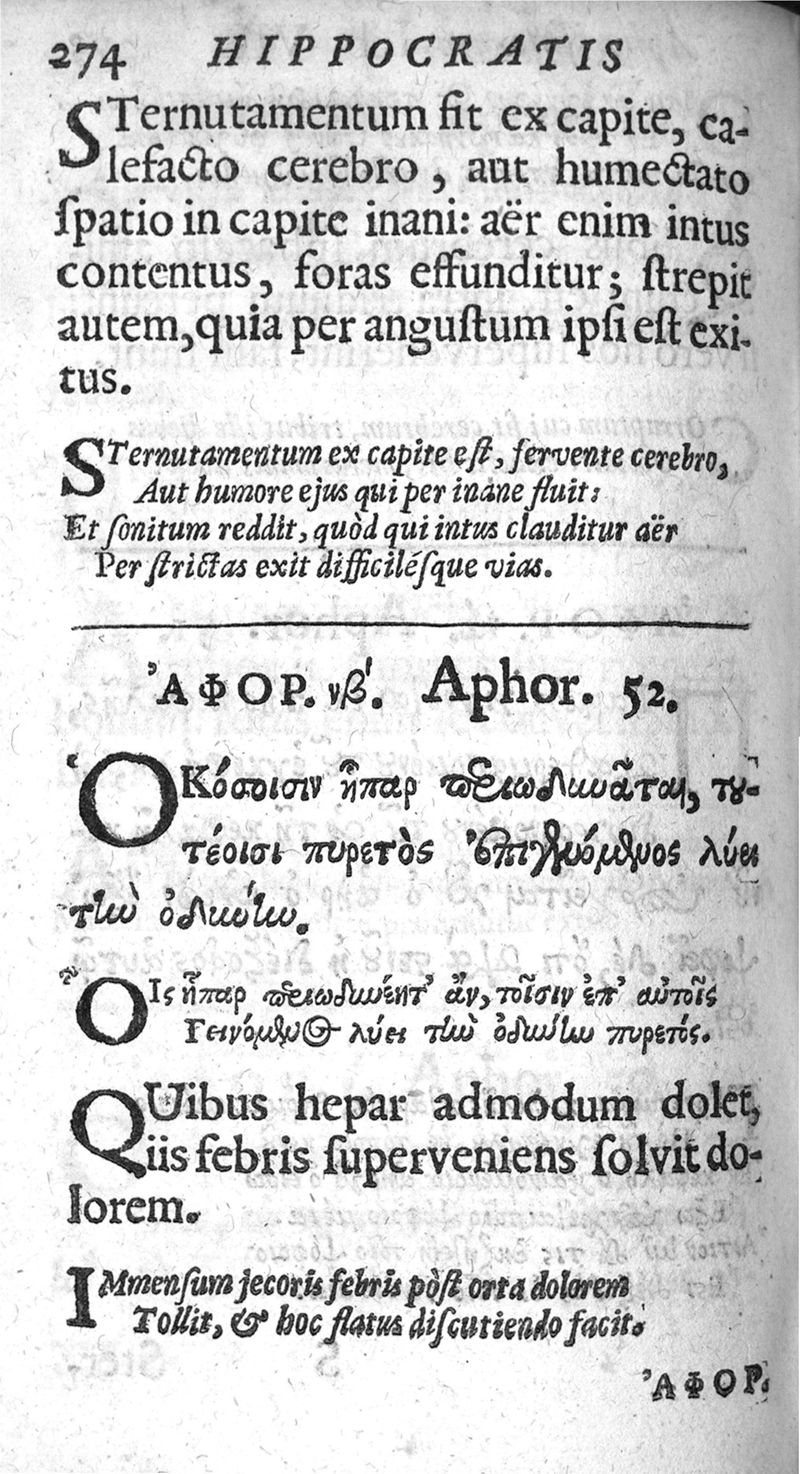 274 HIPPOCRATIS
STernutamentum fit ex capite, ca-
lefacto cerebro, aut humectato
ſpatio in capite inani: aër enim intus
contentus, foras effunditur; ſtrepit
autem, quia per anguſtum ipſi eſt exi-
tus.
STernutamentum ex capite eſt, fervente cerebro,
Aut humore ejus qui per inane fluit:
Et ſonitum reddit, quòd qui intus clauditur aër
Per ſtrictas exit difficiléſque vias.
ἈΦΟΡ. νβʹ. Aphor. 52.
ὉΚόσοισιν ἧπαρ περιωδυνᾶται, του-
τέοισι πυρετὸς ἐπιγενόμενος λύει
τὴν ὀδύνην.
ΟἿς ἧπαρ περιωδυνέητ᾽ ἂν, τοῖσιν ἐπ᾽ αὐτοῖς
Γεινόμενος λύει τὴν ὀδύνην πυρετός.
QUibus hepar admodum dolet,
iis febris ſuperveniens ſolvit do-
lorem.
IMmenſum jecoris febris pòſt orta dolorem
Tollit, & hoc flatus diſcutiendo facit.
ἈΦΟΡ.